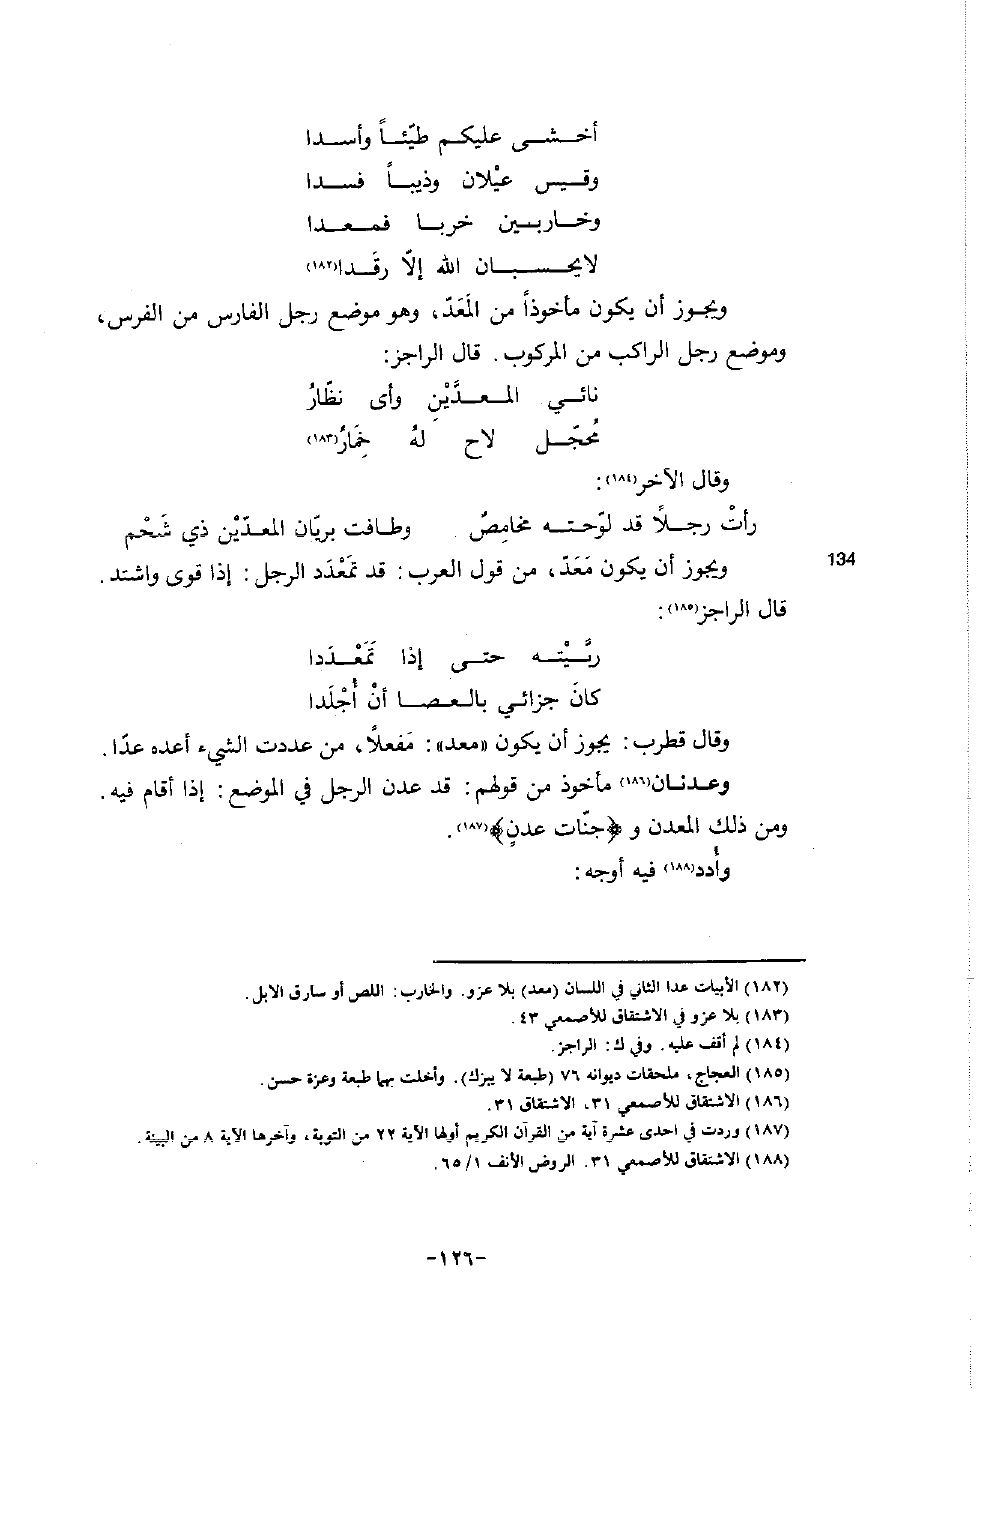 أخشى عليكم طيّئاً وأسدا
وقيس عيْلان وذيباً فسدا
وخاربين خربا فمعدا
لايحسبان الله إلّا رقَدا(١٨٢)
ويجوز أن يكون مأخوذاً من المَعَدّ، وهو موضع رجل الفارس من الفرس،
وموضع رجل الراكب من المركوب. قال الراجز:
نائي المعدَّيْنِ وأى نظّارُ
مُحجّل لاح لهُ خِمَارُ(١٨٣)
وقال الآخر(١٨٤):
رأتْ رجلاً قد لوّحته مخامِصُ وطافت بريّان المعدّيْن ذي شَحْم
ويجوز أن يكون مَعَدّ، من قول العرب: قد تمَعْدَد الرجل: إذا قوى واشتد.
134
قال الراجز(١٨٥):
ربَّيْته حتى إذا تَمَعْدَدا
كانَ جزائي بالعصا أنْ أُجْلَدا
وقال قطرب: يجوز أن يكون «معد»: مَفعلاً، من عددت الشيء أعده عدّا.
وعدنان(١٨٦) مأخوذ من قولهم: قد عدن الرجل في الموضع: إذا أقام فيه.
ومن ذلك المعدن و ﴿جنّات عدنٍ﴾(١٨٧).
وأُدد(١٨٨) فيه أوجه:
(١٨٢) الأبيات عدا الثاني في اللسان (معد) بلا عزو. والخارب: اللص أو سارق الابل.
(١٨٣) بلا عزو في الاشتقاق للأصمعي ٤٣.
(١٨٤) لم أقف عليه. وفي ك: الراجز.
(١٨٥) العجاج، ملحقات ديوانه ٧٦ (طبعة لا يبزك). وأخلت بهما طبعة وعزة حسن.
(١٨٦) الاشتقاق للأصمعي ٣١، الاشتقاق ٣١.
(١٨٧) وردت في احدى عشرة آية من القرآن الكريم أولها الآية ٢٢ من التوبة، وآخرها الآية ٨ من البينة.
(١٨٨) الاشتقاق للأصمعي ٣١. الروض الأنف ١/ ٦٥.
-١٢٦-